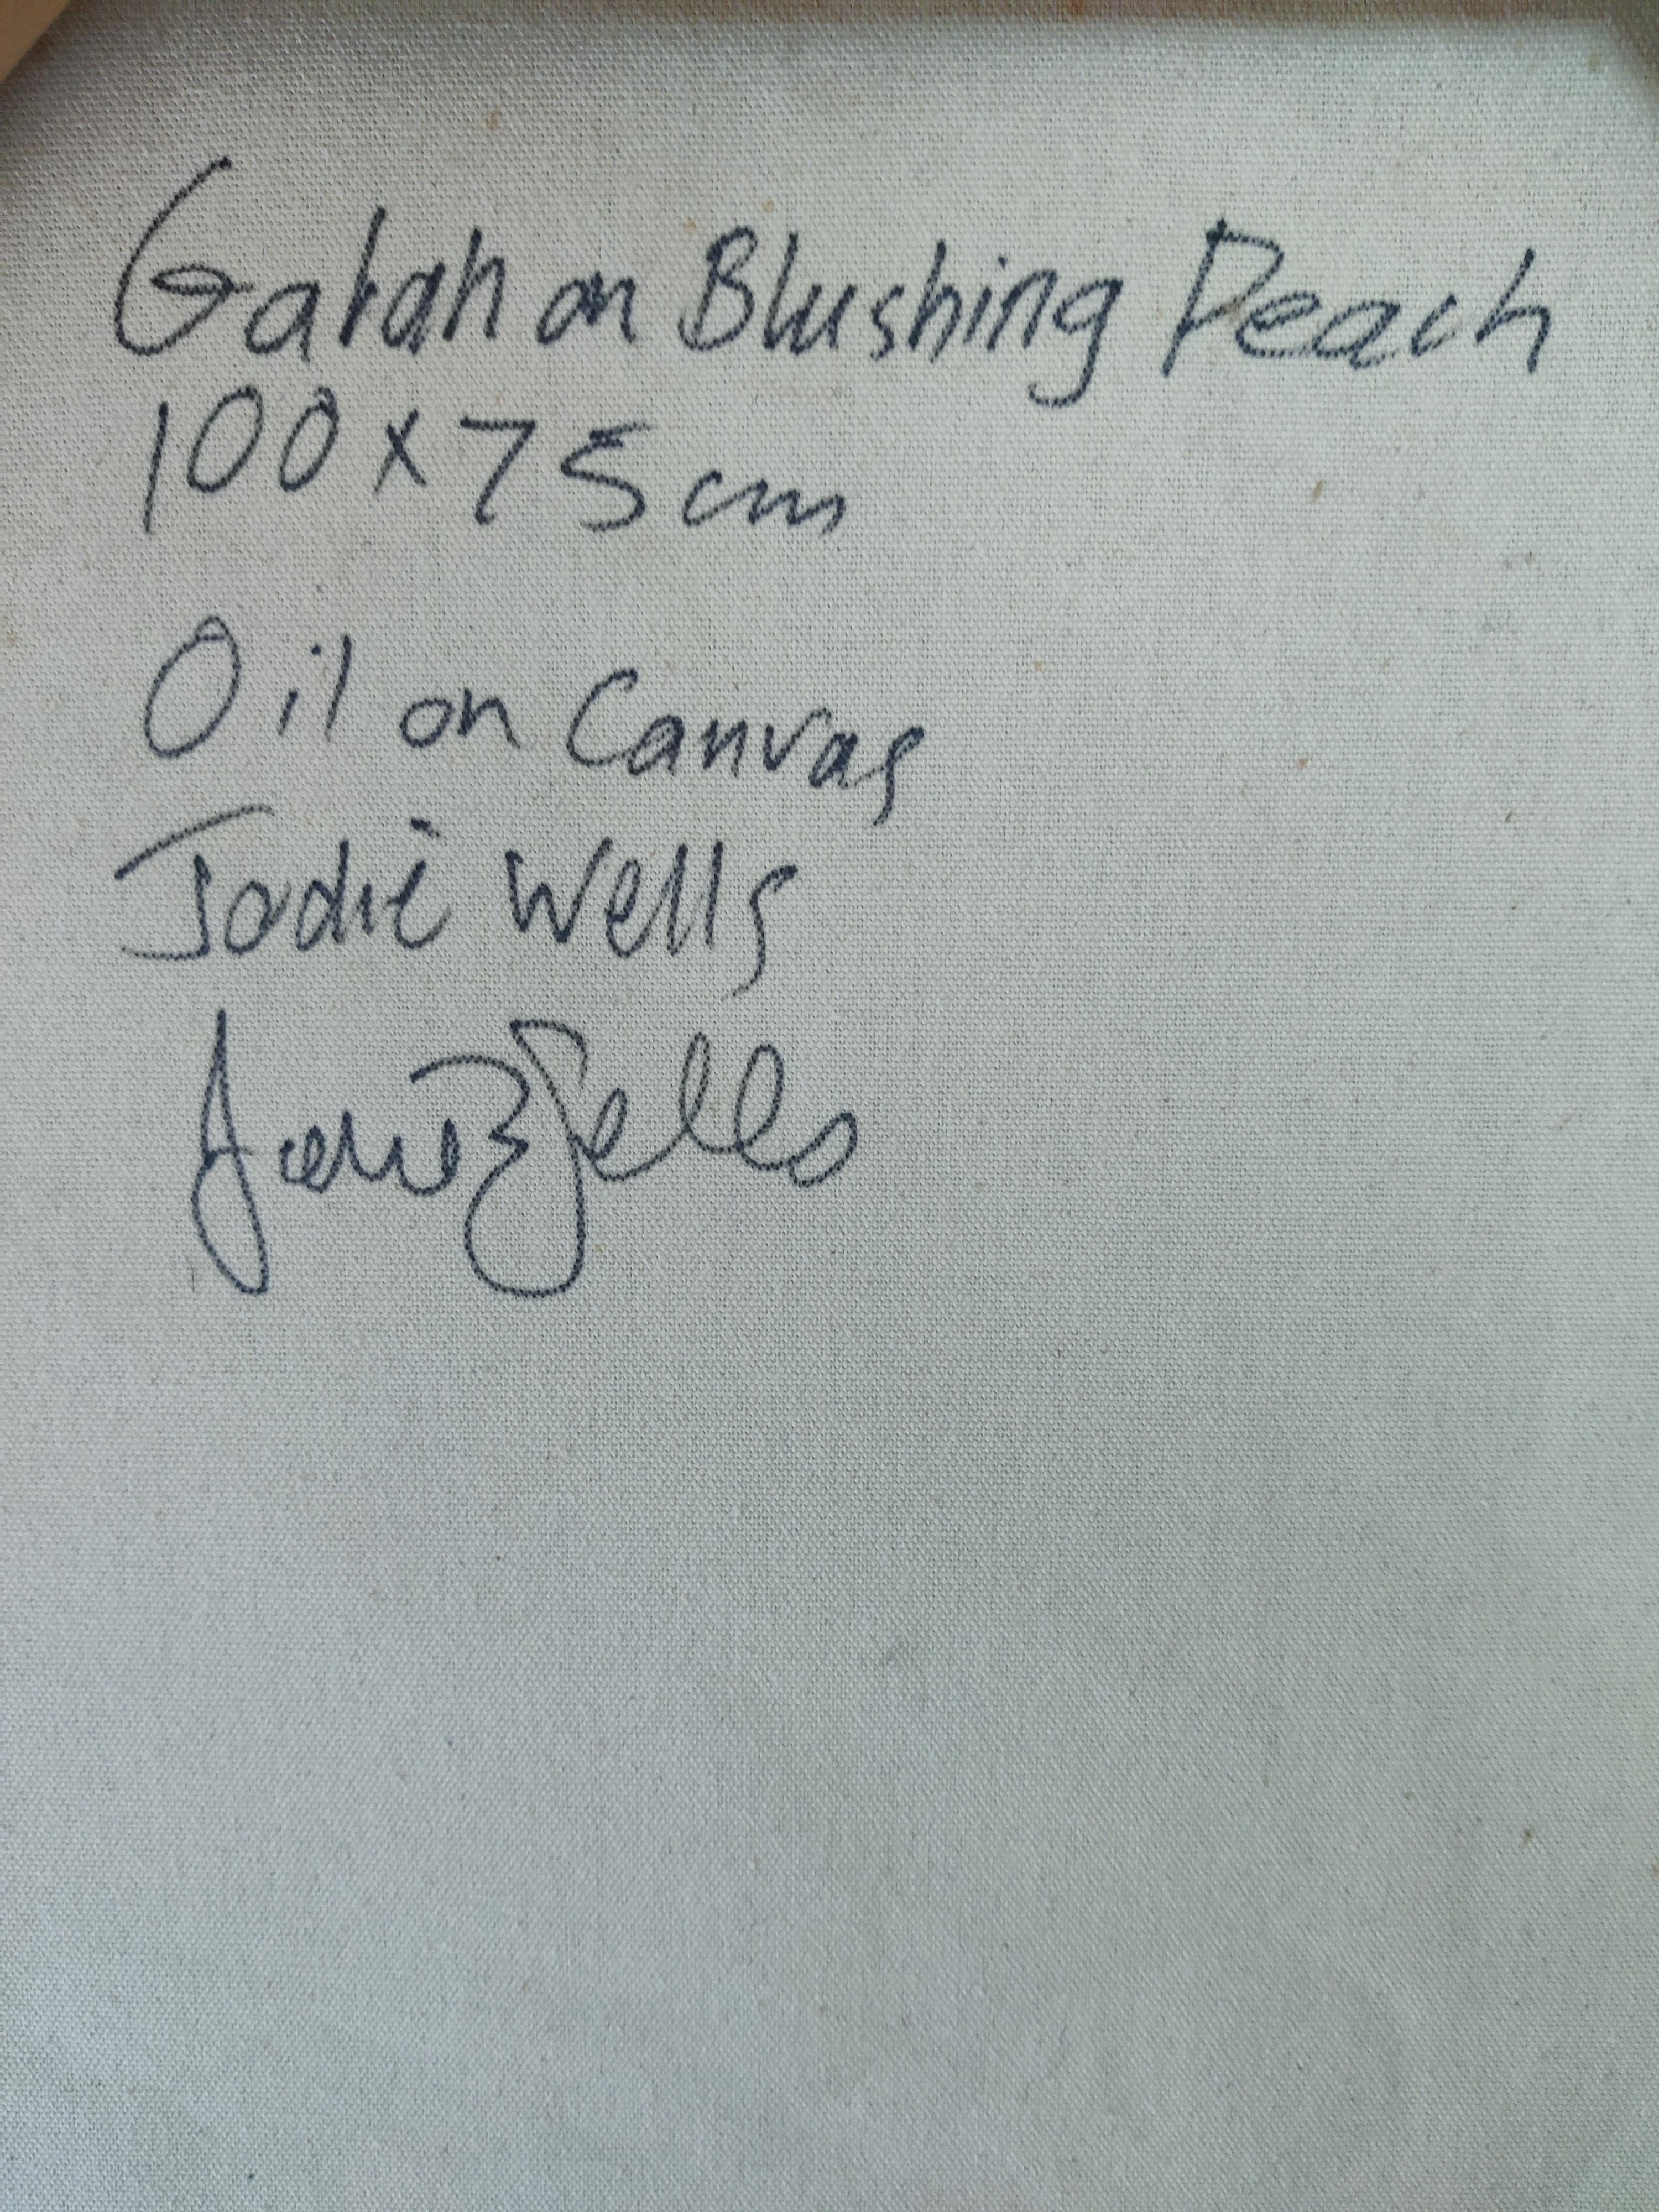 Galah on Blushing Peach
100x75cm
Oil on Canvas
Jodie Wells
Jodie Wells